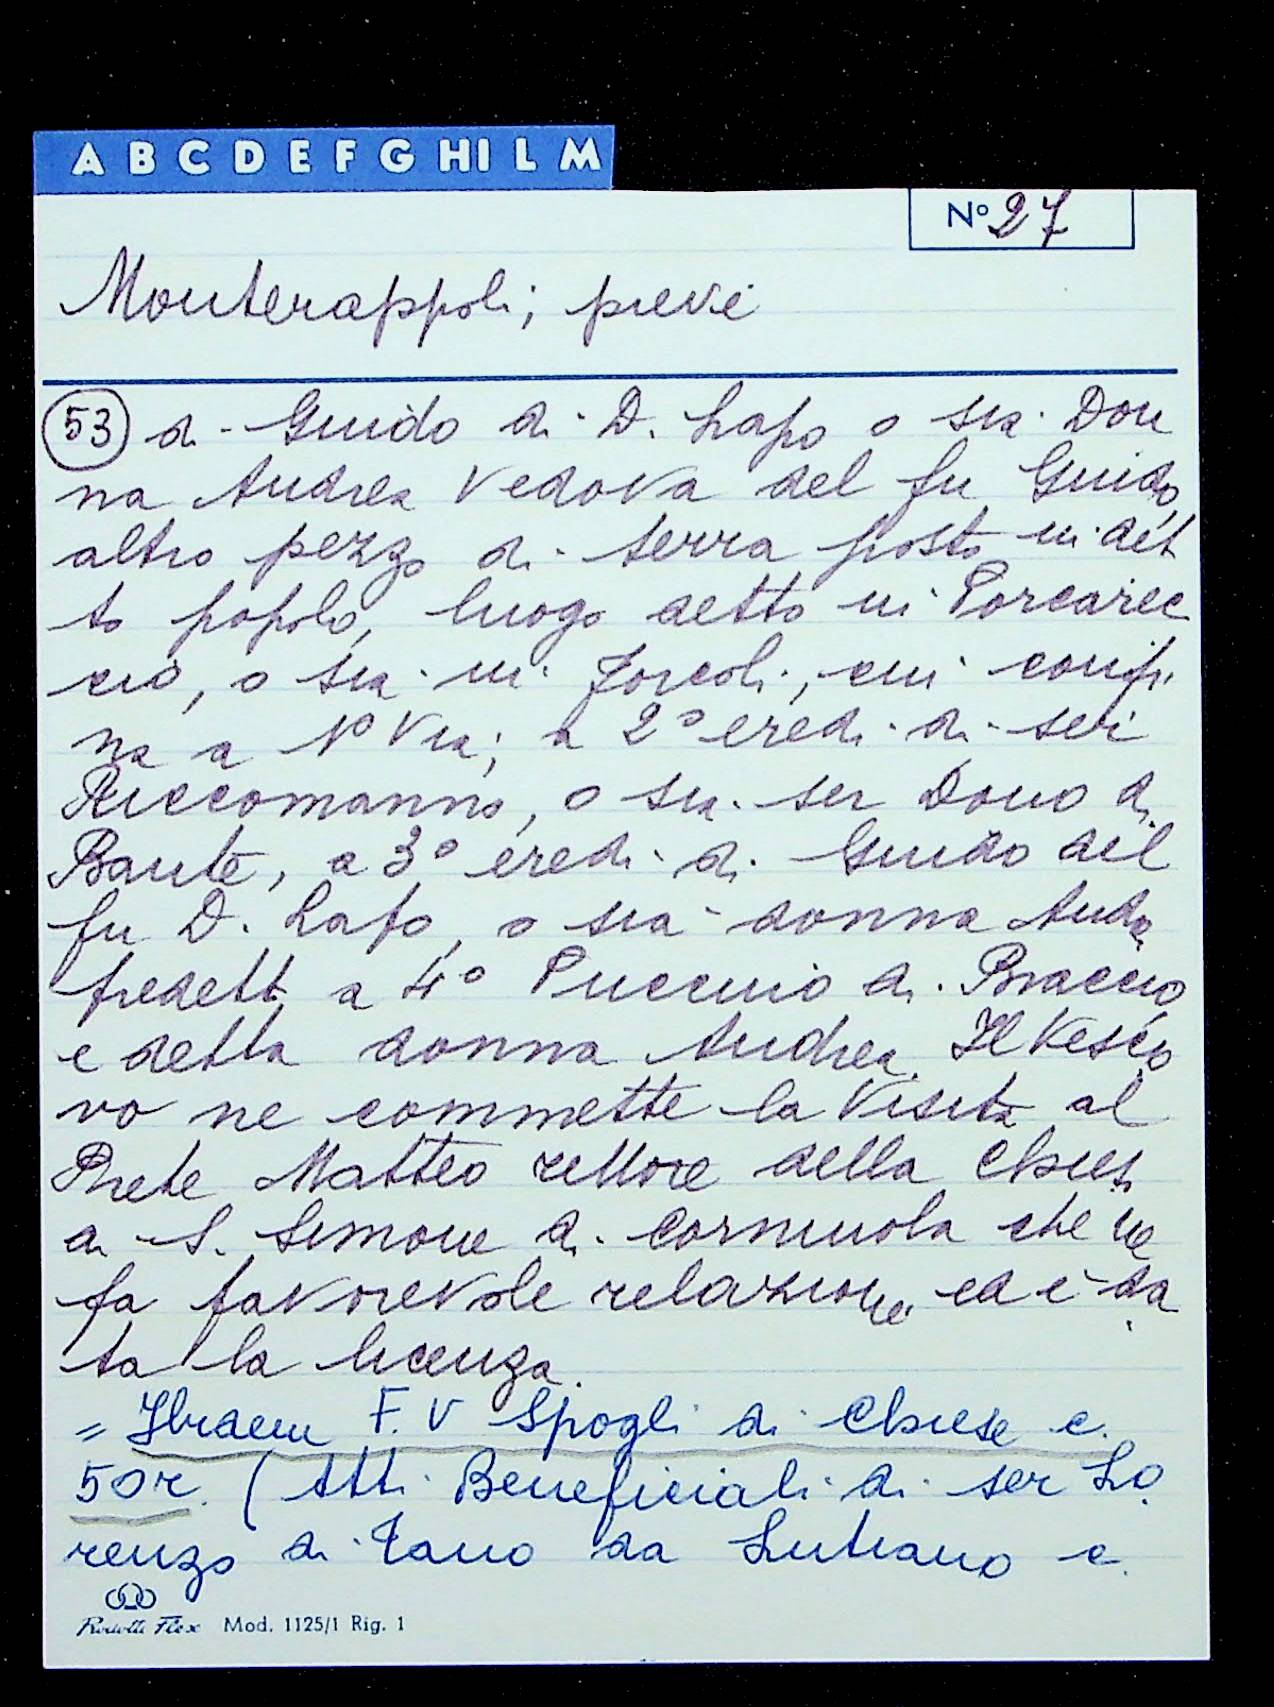 A B C D E F G HI L M
N° 27
Monterappoli; pieve
(53) di Guido di D. Lapo o sia Don
na Andrea vedova del fu Guido,
altro pezzo di terra posto in det
to popolo, luogo detto in Porcarec
cio, o sia in Forcoli, cui confi
na a 1° Via; a 2° eredi di ser
Riccomanno, o sia ser Dono di
Bante, a 3° eredi di Guido del
fu D. Lapo, o sia donna Anda
predett a 4° Puccino di Braccio
e detta donna Andrea. Il Vesco
vo ne commette la visita al
Prete Matteo rettore della Chies
a S. Simone di Corniola che ne
fa favorevole relazione ed è da
ta la licenza.
= Ibidem F. V Spogli di Chiese c.
50r. (Atti Beneficiali di ser Lo
renzo di Tano da Lutiano c.
Flex Mod. 1125/1 Rig. 1